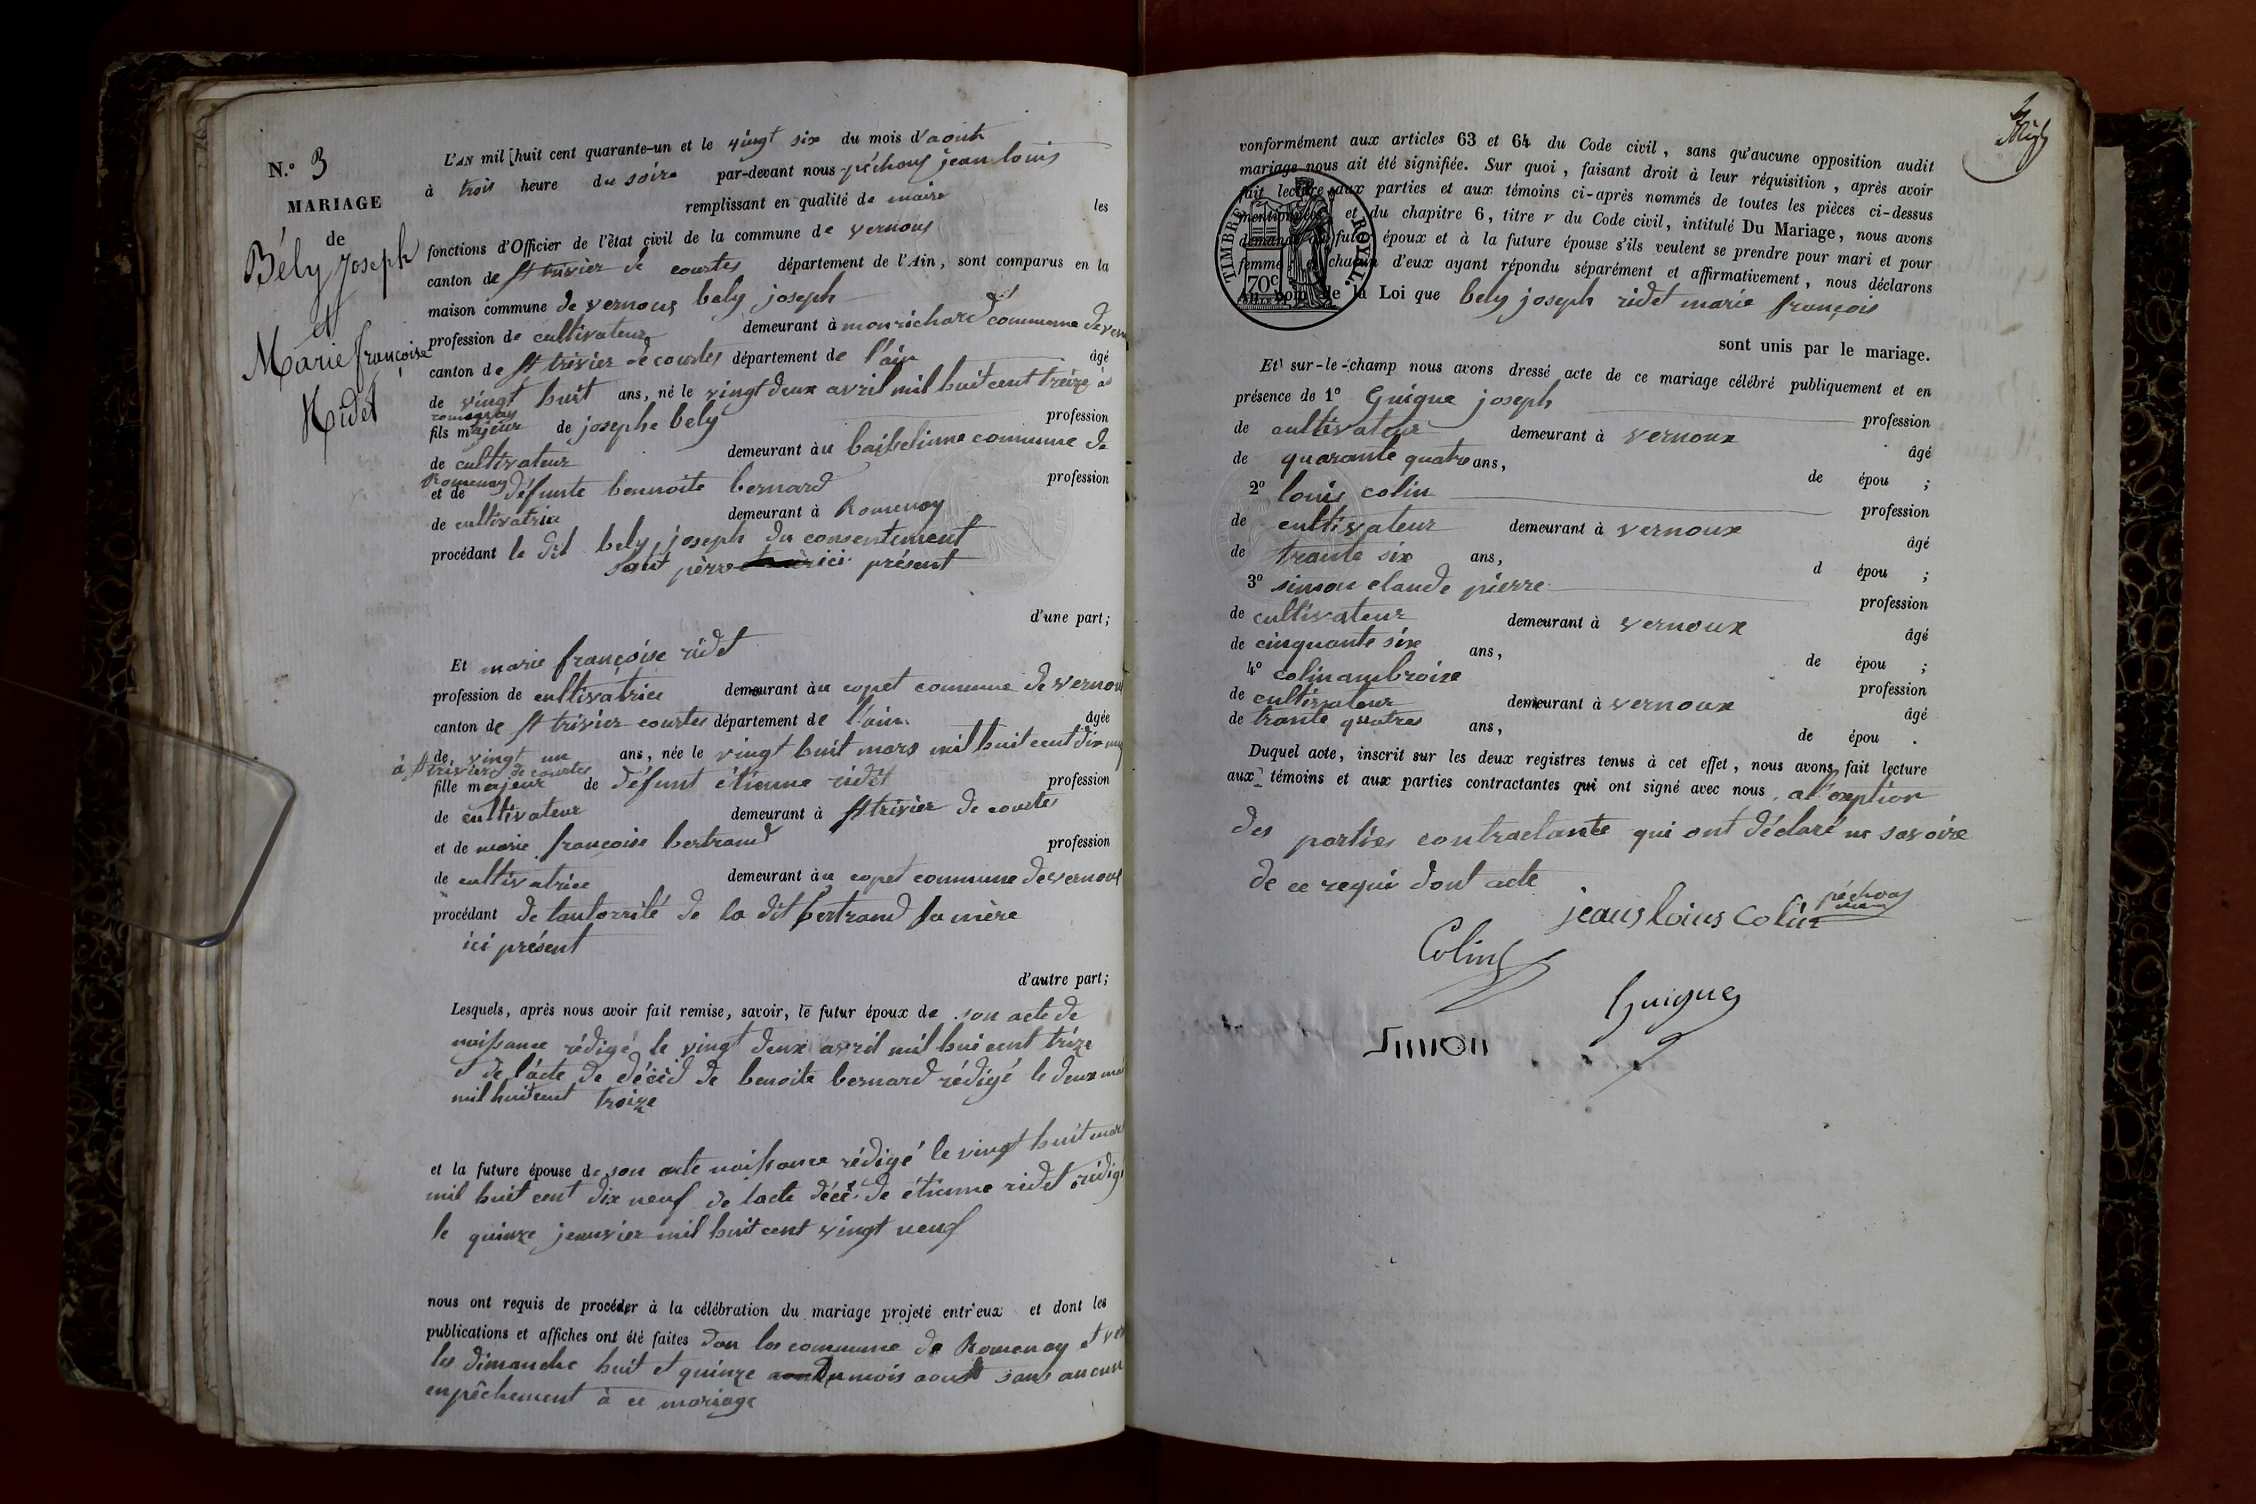 N.º 3
MARIAGE
de
Bély Joseph
et
Marie françoise
Ridet
L'AN mil huit cent quarante-un et le vingt six du mois d'aouth
à trois heure du soire par-devant nous péchoux jean louis
remplissant en qualité de maire les
fonctions d'Officier de l'état civil de la commune de vernoux
canton de St trivier de courtes département de l'Ain, sont comparus en la
maison commune de vernoux bely joseph
profession de cultivateur demeurant à monrichard commune de
canton de St trivier de courtes département de l'ain âgé
de vingt huit ans, né le vingt deux avril mil huit cent treize à
romenay
fils majeur de josephe bely profession
de cultivateur demeurant à commune de
Romenay
et de défunte bennoite bernard profession
de cultivatrice demeurant à Romenay
procédant le dit bely joseph du consentement
sont père ici présent
d'une part;
Et marie françoise ridet
profession de cultivatrice demeurant àu copet commune de vernoux
canton de St trivier courtes département de l'ain âgée
de vingt un ans, née le vingt huit mars mil huit cent dix neuf
à St trivier de courtes
fille majeur de défunt étienne ridet profession
de cultivateur demeurant à St trivier de courtes
et de marie françoise bertrand profession
de cultivatrice demeurant àu copet commune de vernoux
procédant de lautorrité de la dit bertrand sa mère
ici présent
d'autre part;
Lesquels, après nous avoir fait remise, savoir, le futur époux de son acte de
naissance rédigé le vingt deux avril mil hui cent trize
et de l'acte de décèd de benoite bernard rédigé le deux
mil huit cent troize
et la future épouse de son acte naissance rédigé le vingt huit mars
mil huit cent dix neuf de lacte décès de étienne ridet rédigé
le quinze jeanvier mil huit cent vingt neuf
nous ont requis de procéder à la célébration du mariage projeté entr'eux et dont les
publications et affiches ont été faites dan los commune de Romenay et
les dimanche huit et quinze du mois aoust sans aucun
enpêchement à ce mariage
conformément aux articles 63 et 64 du Code civil, sans qu'aucune opposition audit
mariage nous ait été signifiée. Sur quoi, faisant droit à leur réquisition, après avoir
fait lecture aux parties et aux témoins ci-après nommés de toutes les pièces ci-dessus
mentionnées, et du chapitre 6, titre v du Code civil, intitulé Du Mariage, nous avons
demandé au futur époux et à la future épouse s'ils veulent se prendre pour mari et pour
femme, et chacun d'eux ayant répondu séparément et affirmativement, nous déclarons
Au nom de la Loi que bely joseph ridet marie françois
TIMBRE ROYAL.
70c
sont unis par le mariage.
Et sur-le-champ nous avons dressé acte de ce mariage célébré publiquement et en
présence de 1º Guigue joseph
profession
de cultivateur demeurant à vernoux
âgé
de quarante quatre ans,
de épou ;
2º louis colin
profession
de cultivateur demeurant à vernoux
âgé
de trante six ans,
d épou ;
3º simon claude pierre
profession
de cultivateur demeurant à vernoux
âgé
de cinquante six ans,
de épou ;
4º colin ambroise
profession
de cultivateur demeurant à vernoux
âgé
de trante quatres ans,
de épou .
Duquel acte, inscrit sur les deux registres tenus à cet effet, nous avons fait lecture
aux témoins et aux parties contractantes qui ont signé avec nous, a l'exeption
des parties contractante qui ont déclaré ne savoire
de ce requi dont acte
péchoux
jeanslouis Colin
Colin
Guigue
Simon